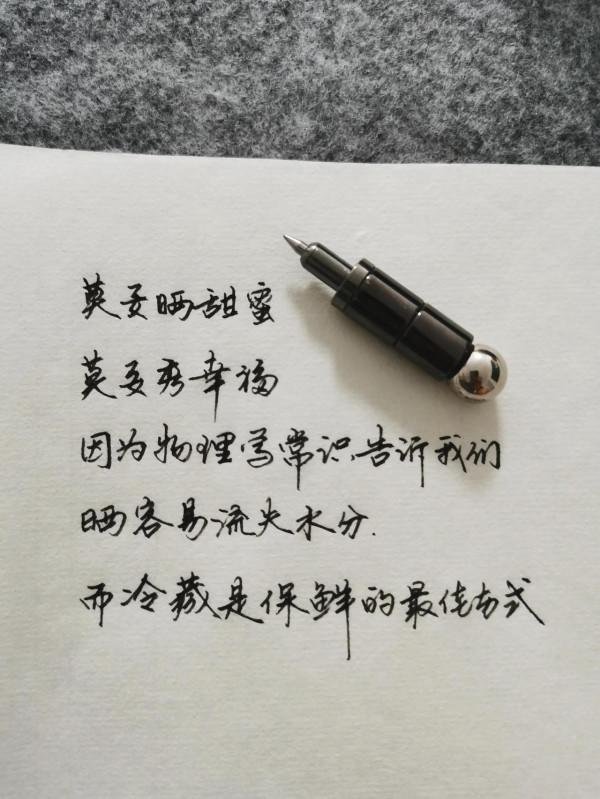 莫要晒甜蜜
莫要秀幸福
因为物理学常识告诉我们
晒容易流失水分.
而冷藏是保鲜的最佳方式